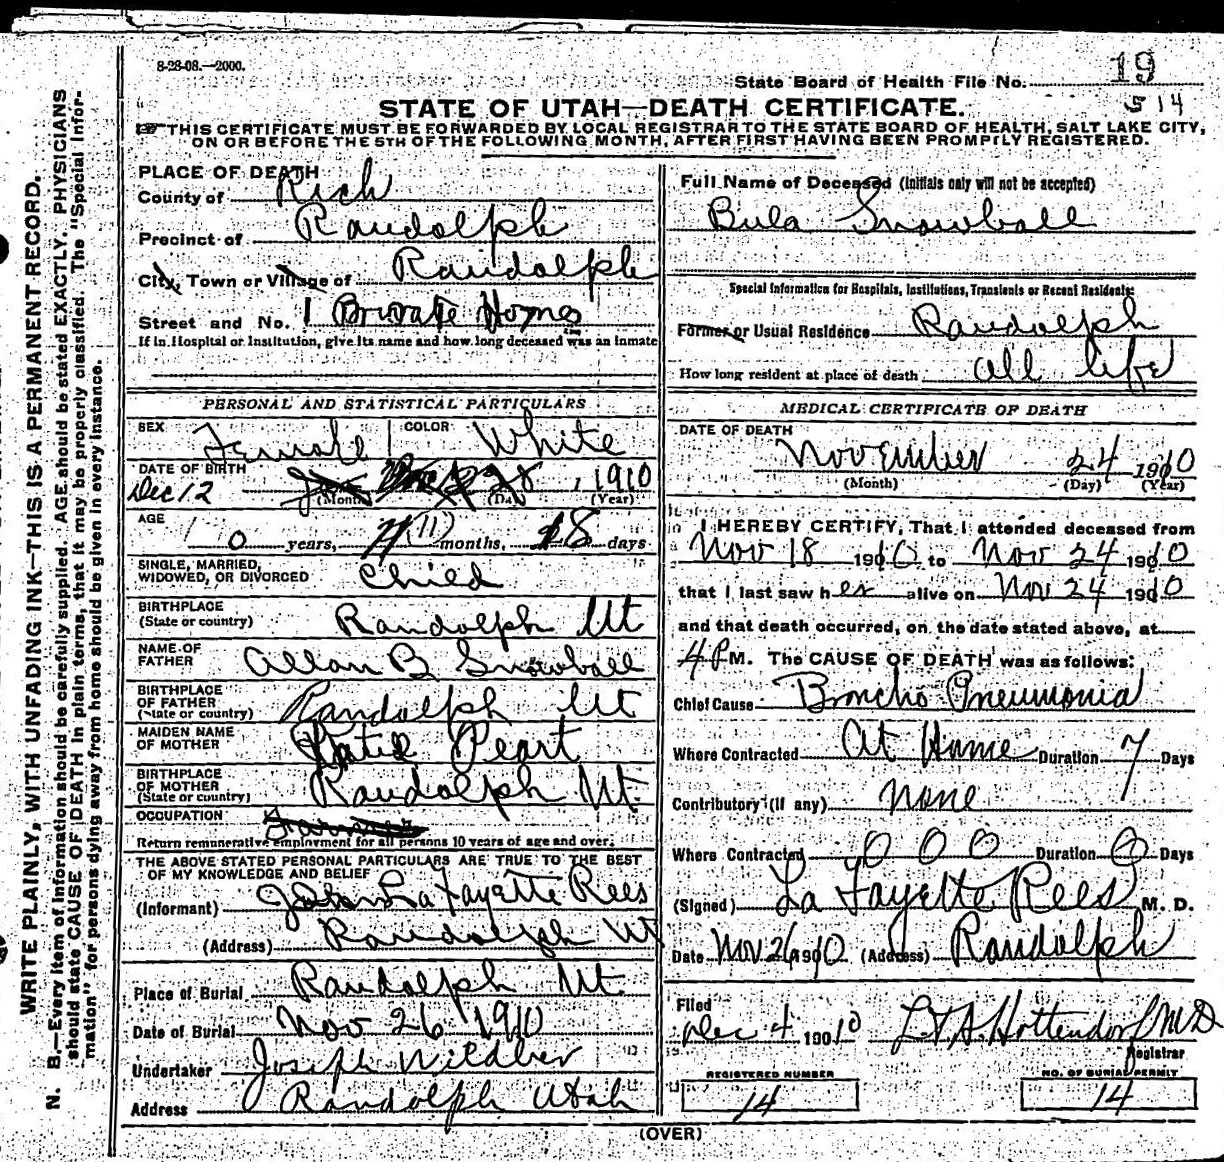 8-28-08.—2000.
State Board of Health File No. 19
514
STATE OF UTAH—DEATH CERTIFICATE.
THIS CERTIFICATE MUST BE FORWARDED BY LOCAL REGISTRAR TO THE STATE BOARD OF HEALTH, SALT LAKE CITY,
ON OR BEFORE THE 5TH OF THE FOLLOWING MONTH, AFTER FIRST HAVING BEEN PROMPTLY REGISTERED.
WRITE PLAINLY, WITH UNFADING INK—THIS IS A PERMANENT RECORD.
N. B.—Every item of information should be carefully supplied. AGE should be stated EXACTLY. PHYSICIANS
should state CAUSE OF DEATH in plain terms, that it may be properly classified. The "Special Infor-
mation" for persons dying away from home should be given in every instance.
PLACE OF DEATH
County of Rich
Precinct of Randolph
City, Town or Village of Randolph
Street and No. Private Home
If in Hospital or Institution, give its name and how long deceased was an inmate
PERSONAL AND STATISTICAL PARTICULARS
SEX Female COLOR White
DATE OF BIRTH
Dec 12 28, 1910
(Month) (Day) (Year)
AGE
0 years, 11 months, 18 days
SINGLE, MARRIED,
WIDOWED, OR DIVORCED Child
BIRTHPLACE
(State or country) Randolph Ut
NAME OF
FATHER Allan B Snowball
BIRTHPLACE
OF FATHER
(State or country) Randolph Ut
MAIDEN NAME
OF MOTHER Katie Peart
BIRTHPLACE
OF MOTHER
(State or country) Randolph Ut
OCCUPATION Farmer
Return remunerative employment for all persons 10 years of age and over.
THE ABOVE STATED PERSONAL PARTICULARS ARE TRUE TO THE BEST
OF MY KNOWLEDGE AND BELIEF
(Informant) John La Fayette Rees
(Address) Randolph Ut
Place of Burial Randolph Ut
Date of Burial Nov 26 1910
Undertaker Joseph
Address Randolph Utah
Full Name of Deceased (Initials only will not be accepted)
Bula Snowball
Special Information for Hospitals, Institutions, Transients or Recent Residents:
Former or Usual Residence Randolph
How long resident at place of death all life
MEDICAL CERTIFICATE OF DEATH
DATE OF DEATH
November 24 1910
(Month) (Day) (Year)
I HEREBY CERTIFY, That I attended deceased from
Nov 18 1910 to Nov 24 1910
that I last saw her alive on Nov 24 1910
and that death occurred, on the date stated above, at
4 P M. The CAUSE OF DEATH was as follows:
Chief Cause Broncho Pneumonia
Where Contracted At Home Duration 7 Days
Contributory (if any) None
Where Contracted 0 0 0 Duration 0 Days
(Signed) La Fayette Rees M. D.
Date Nov 26 1910 (Address) Randolph
Filed
Dec 4 1910 Hottendorf MD
Registrar
REGISTERED NUMBER
14
NO. OF BURIAL PERMIT
14
(OVER)